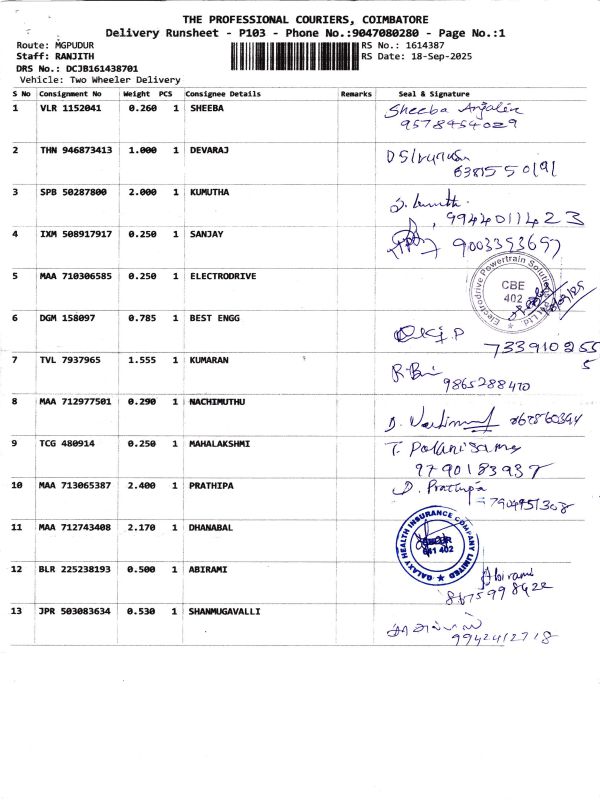 THE PROFESSIONAL COURIERS, COIMBATORE
Delivery Runsheet - P103 - Phone No.:9047080280 - Page No.:1
Route: MGPUDUR RS No.: 1614387
Staff: RANJITH RS Date: 18-Sep-2025
DRS No.: DCJB161438701
Vehicle: Two Wheeler Delivery
S No Consignment No Weight PCS Consignee Details Remarks Seal & Signature
1 VLR 1152041 0.260 1 SHEEBA Sheeba
9578454029
2 THN 946873413 1.000 1 DEVARAJ
6381550191
3 SPB 50287800 2.000 1 KUMUTHA
9944011423
4 IXM 508917917 0.250 1 SANJAY 9003353697
5 MAA 710306585 0.250 1 ELECTRODRIVE Electrodrive Powertrain Solutions
CBE
402
6 DGM 158097 0.785 1 BEST ENGG
7339102555
7 TVL 7937965 1.555 1 KUMARAN
9865288470
8 MAA 712977501 0.290 1 NACHIMUTHU
9 TCG 480914 0.250 1 MAHALAKSHMI T. Palanisamy
9790183937
10 MAA 713065387 2.400 1 PRATHIPA D. Prathipa
7904951308
11 MAA 712743408 2.170 1 DHANABAL GALAXY HEALTH INSURANCE COMPANY LIMITED
641 402
12 BLR 225238193 0.500 1 ABIRAMI Abirami
8675998422
13 JPR 503083634 0.530 1 SHANMUGAVALLI
9942412718